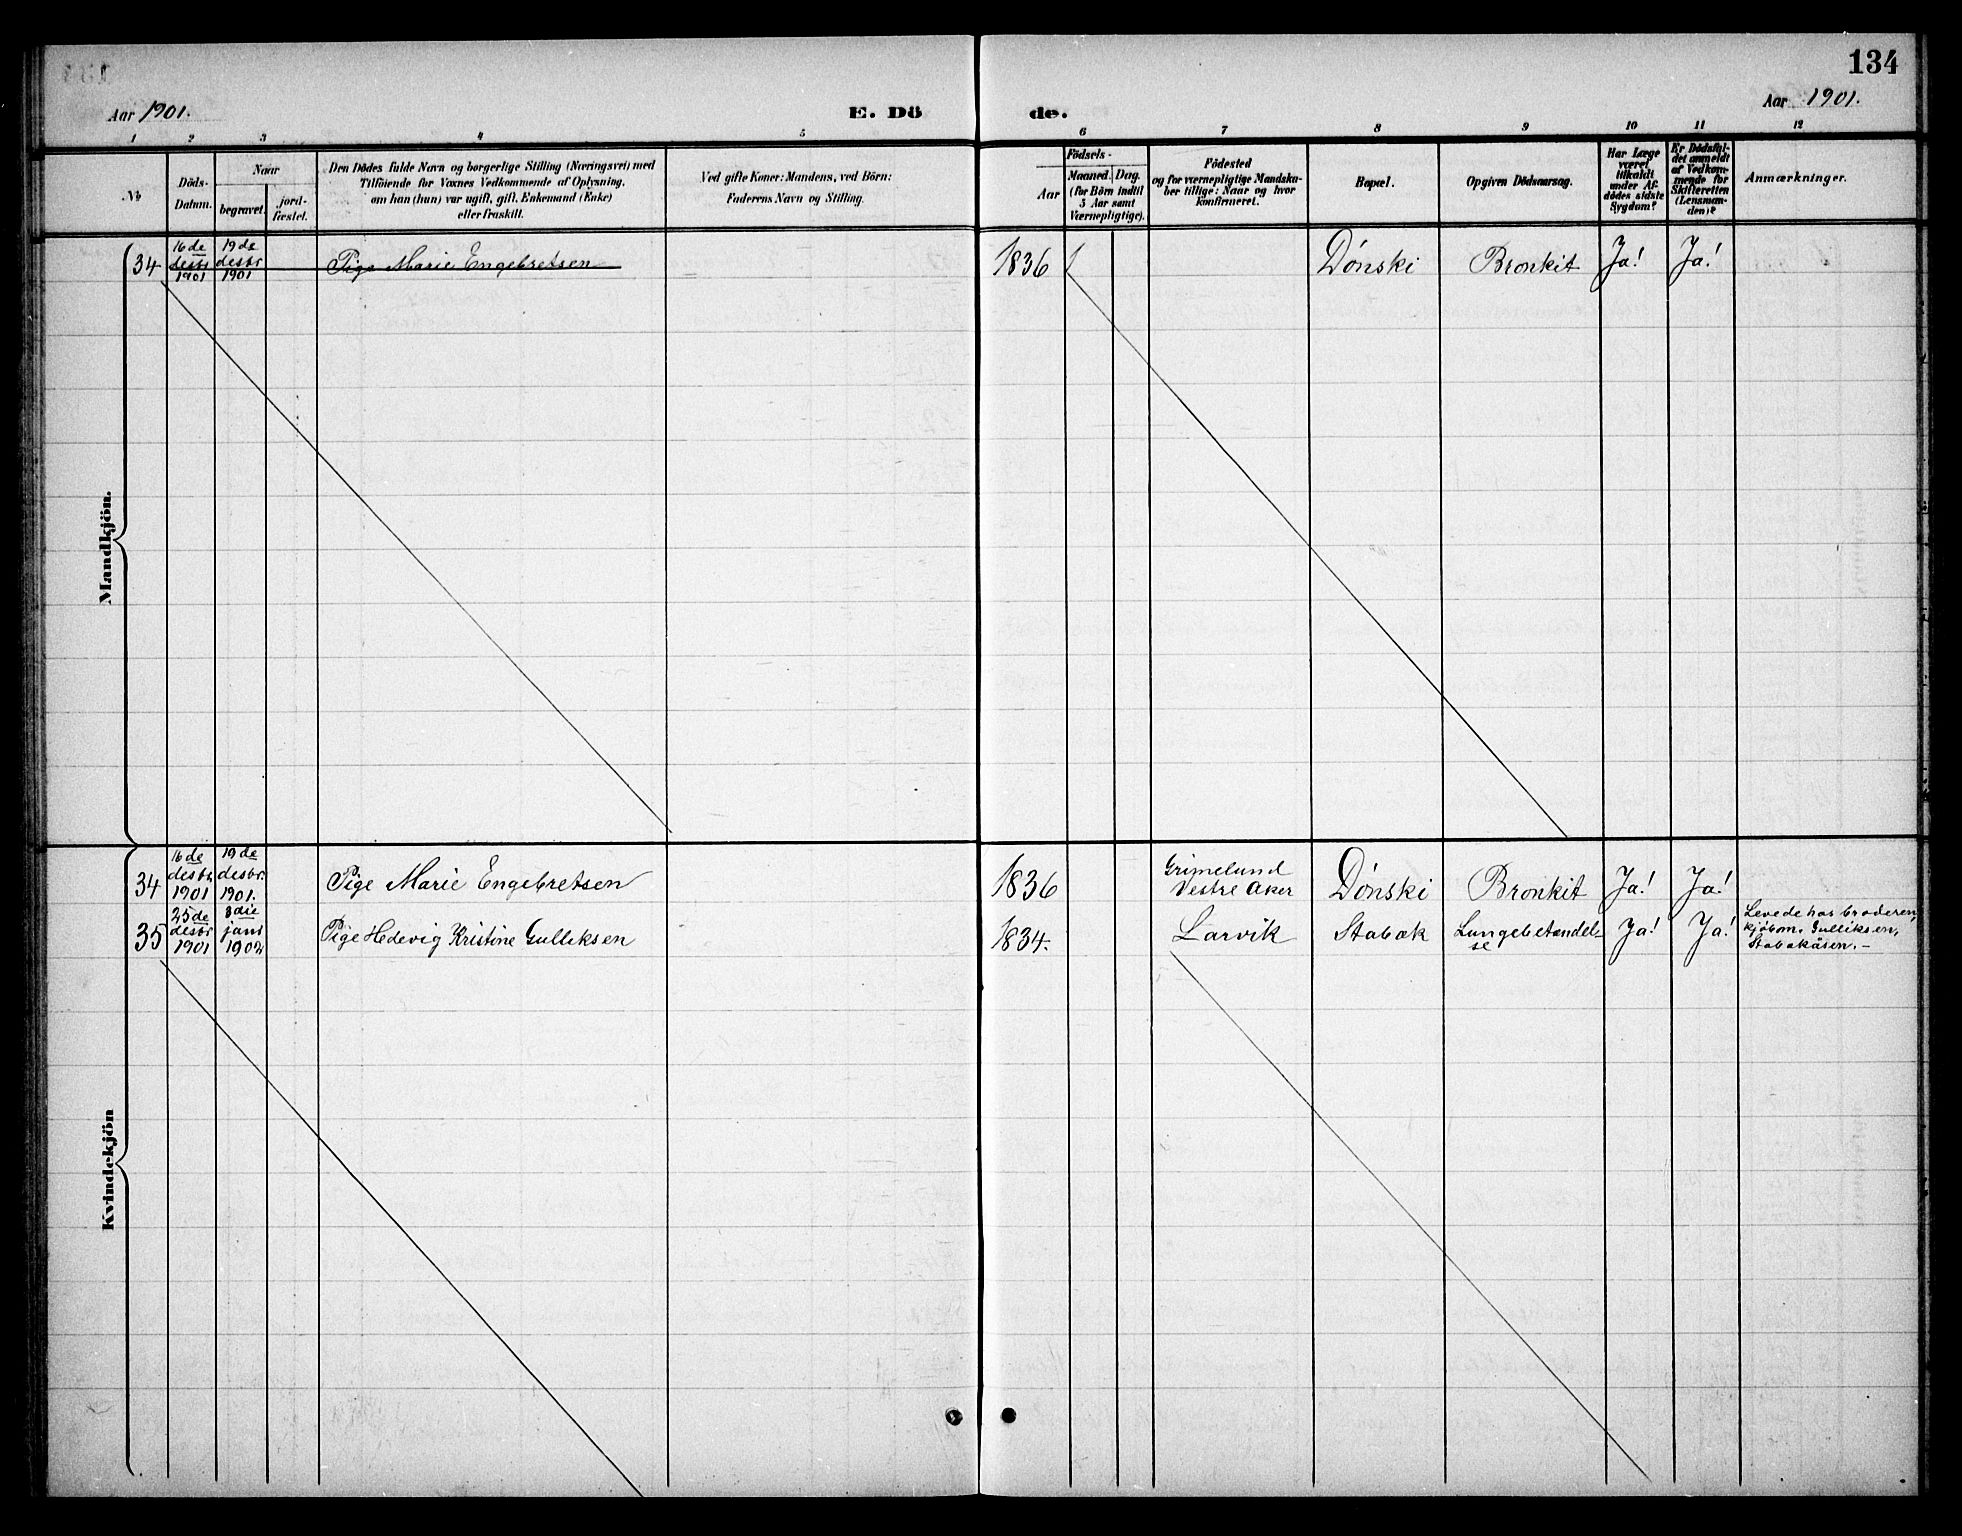 134
Aar 1901.
E. Dö
de.
Aar 1901.
1 2 3 4 5 6 7 8 9 10 11 12
No
Döds-
Datum.
Naar
begravet.
jord-
fæstet.
Den Dödes fulde Navn og borgerlige Stilling (Næringsvei) med
Tilföiende for Voxnes Vedkommende af Oplysning,
om han (hun) var ugift, gift, Enkemand (Enke)
eller fraskilt.
Ved gifte Koner: Mandens, ved Börn:
Faderens Navn og Stilling.
Födsels-
Aar
Maaned.
Dag.
(for Börn indtil
5 Aar samt
Værnepligtige).
Födested
og for værnepligtige Mandska-
ber tillige: Naar og hvor
konfirmeret.
Bopæl.
Opgiven Dödsaarsag.
Har Læge
været
tilkaldt
under Af-
dödes sidste
Sygdom?
Er Dödsfal-
det anmeldt
af Vedkom-
mende for
Skifteretten
(Lensman-
den)?
Anmærkninger.
Mandkjön.
34
16de
desbr
1901
19de
desbr
1901
Pige Marie Engebretsen
1836
Dönski
Bronkit
Ja!
Ja!
Kvindekjön
34
16de
desbr.
1901
19de
desbr.
1901.
Pige Marie Engebretsen
1836
Grimelund
Vestre Aker
Dönski
Bronkit
Ja!
Ja!
35
25de
desbr
1901
3die
janr
1902
Pige Hedevig Kristine Gulliksen
1834.
Larvik
Stabæk
Lungebetændel-
se
Ja!
Ja!
Levede hos broderen,
kjøbm. Gulliksen,
Stabækåsen. –